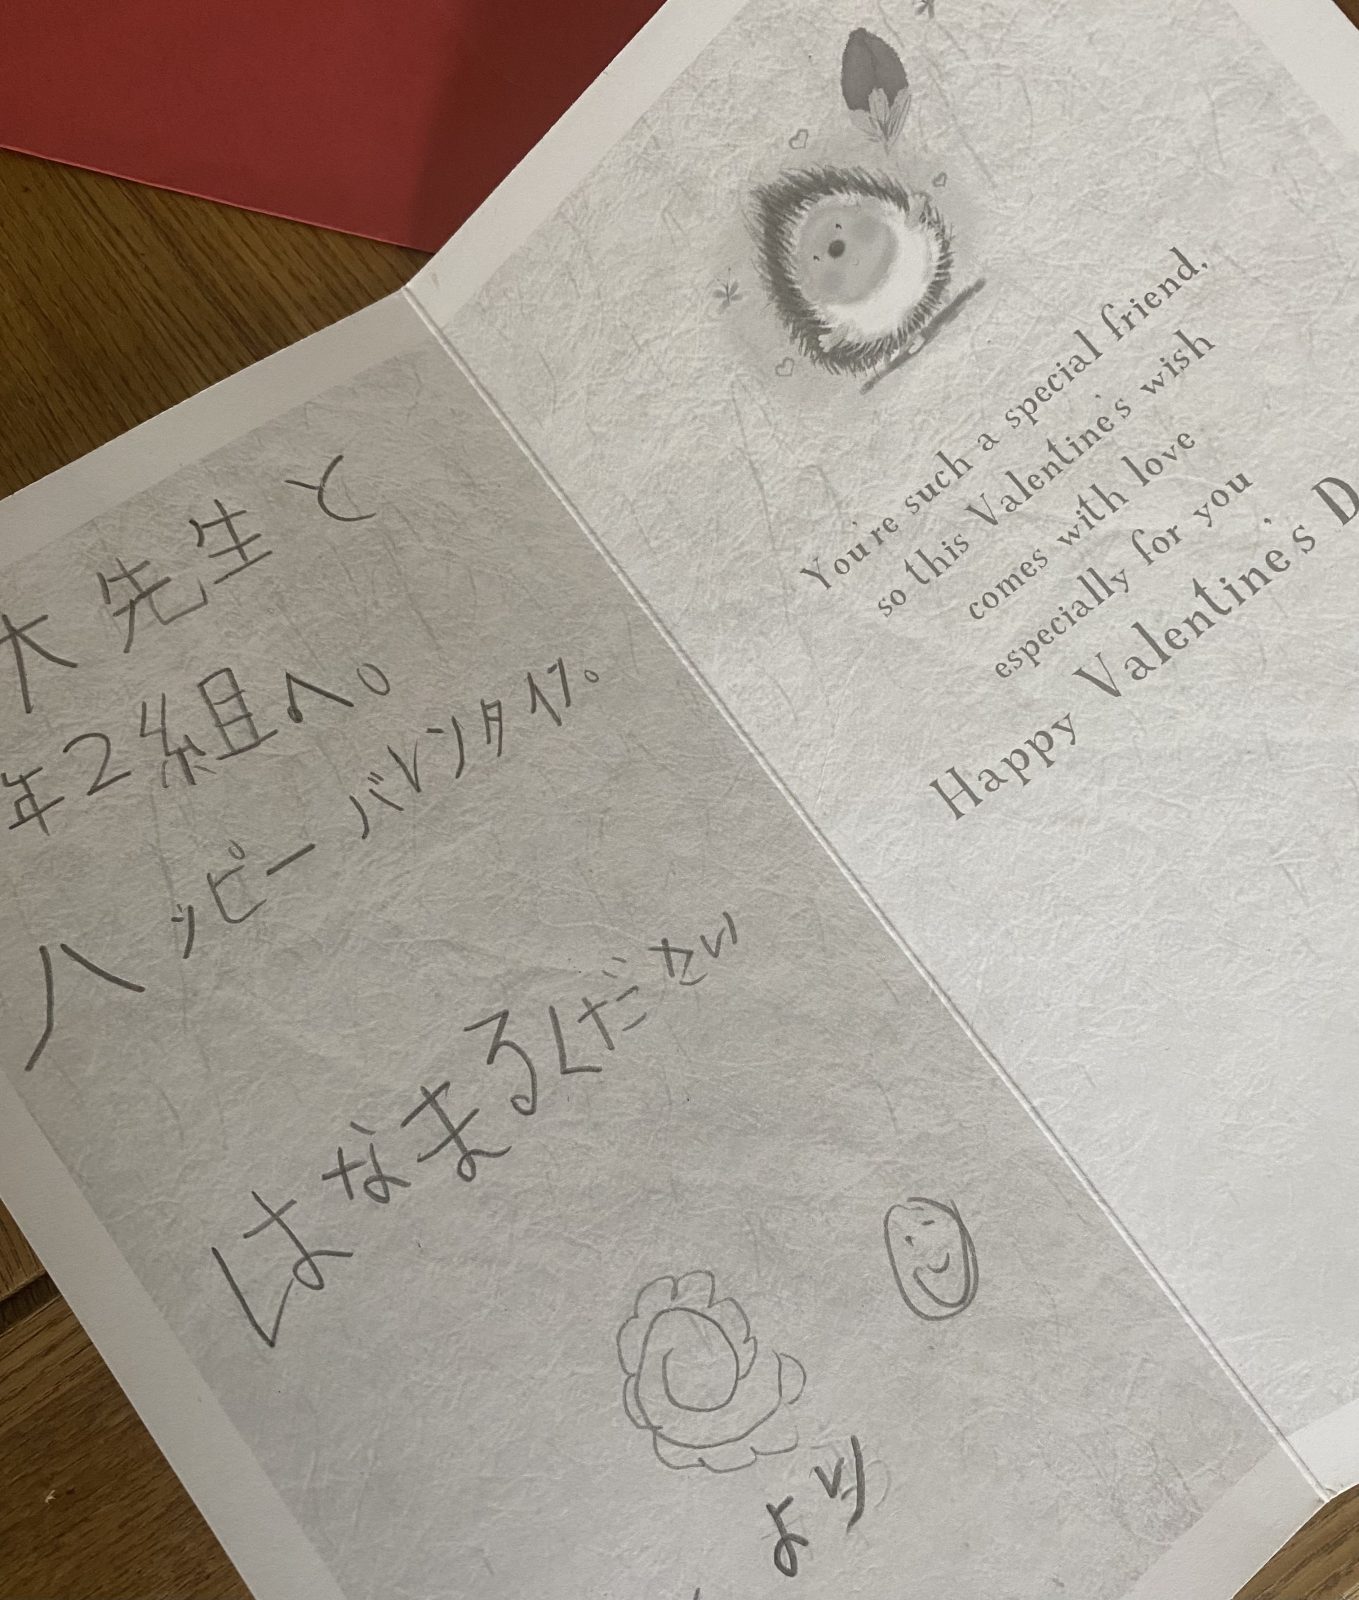 大先生と
年2組へ。
ハッピーバレンタイン。
はなまるください
より
You're such a special friend,
so this Valentine's wish
comes with love
especially for you
Happy Valentine's D